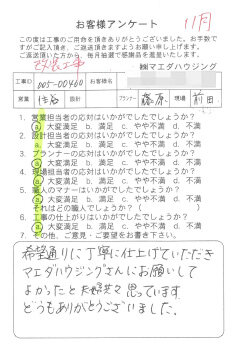 お客様アンケート
11月
この度は工事のご用命を頂きありがとうございました。お手数で
すがご記入頂き、ご返送頂きますようお願い申し上げます。
ご返送頂いた方から、毎月抽選で感謝品を進呈いたします。
改装工事
㈱マエダハウジング
工事ID
005-00460
お客様名
営業
住谷
設計
プランナー
藤原
現場
前田
1. 営業担当者の応対はいかがでしたでしょうか?
a.大変満足 b.満足 c.やや不満 d.不満
2. 設計担当者の応対はいかがでしたでしょうか?
a.大変満足 b.満足 c.やや不満 d.不満
3. プランナーの応対はいかがでしたでしょうか?
a.大変満足 b.満足 c.やや不満 d.不満
4. 現場担当者の応対はいかがでしたでしょうか?
a.大変満足 b.満足 c.やや不満 d.不満
5. 職人のマナーはいかがでしたでしょうか?
a.大変満足 b.満足 c.やや不満 d.不満
それはどの職人でしょうか?(
6. 工事の仕上がりはいかがでしたでしょうか?
a.大変満足 b.満足 c.やや不満 d.不満
7. その他、ご意見・ご要望をお書き下さい。
希望通りに丁寧に仕上げていただき
マエダハウジングさんにお願いして
よかったと大変思っています
どうもありがとうございました。